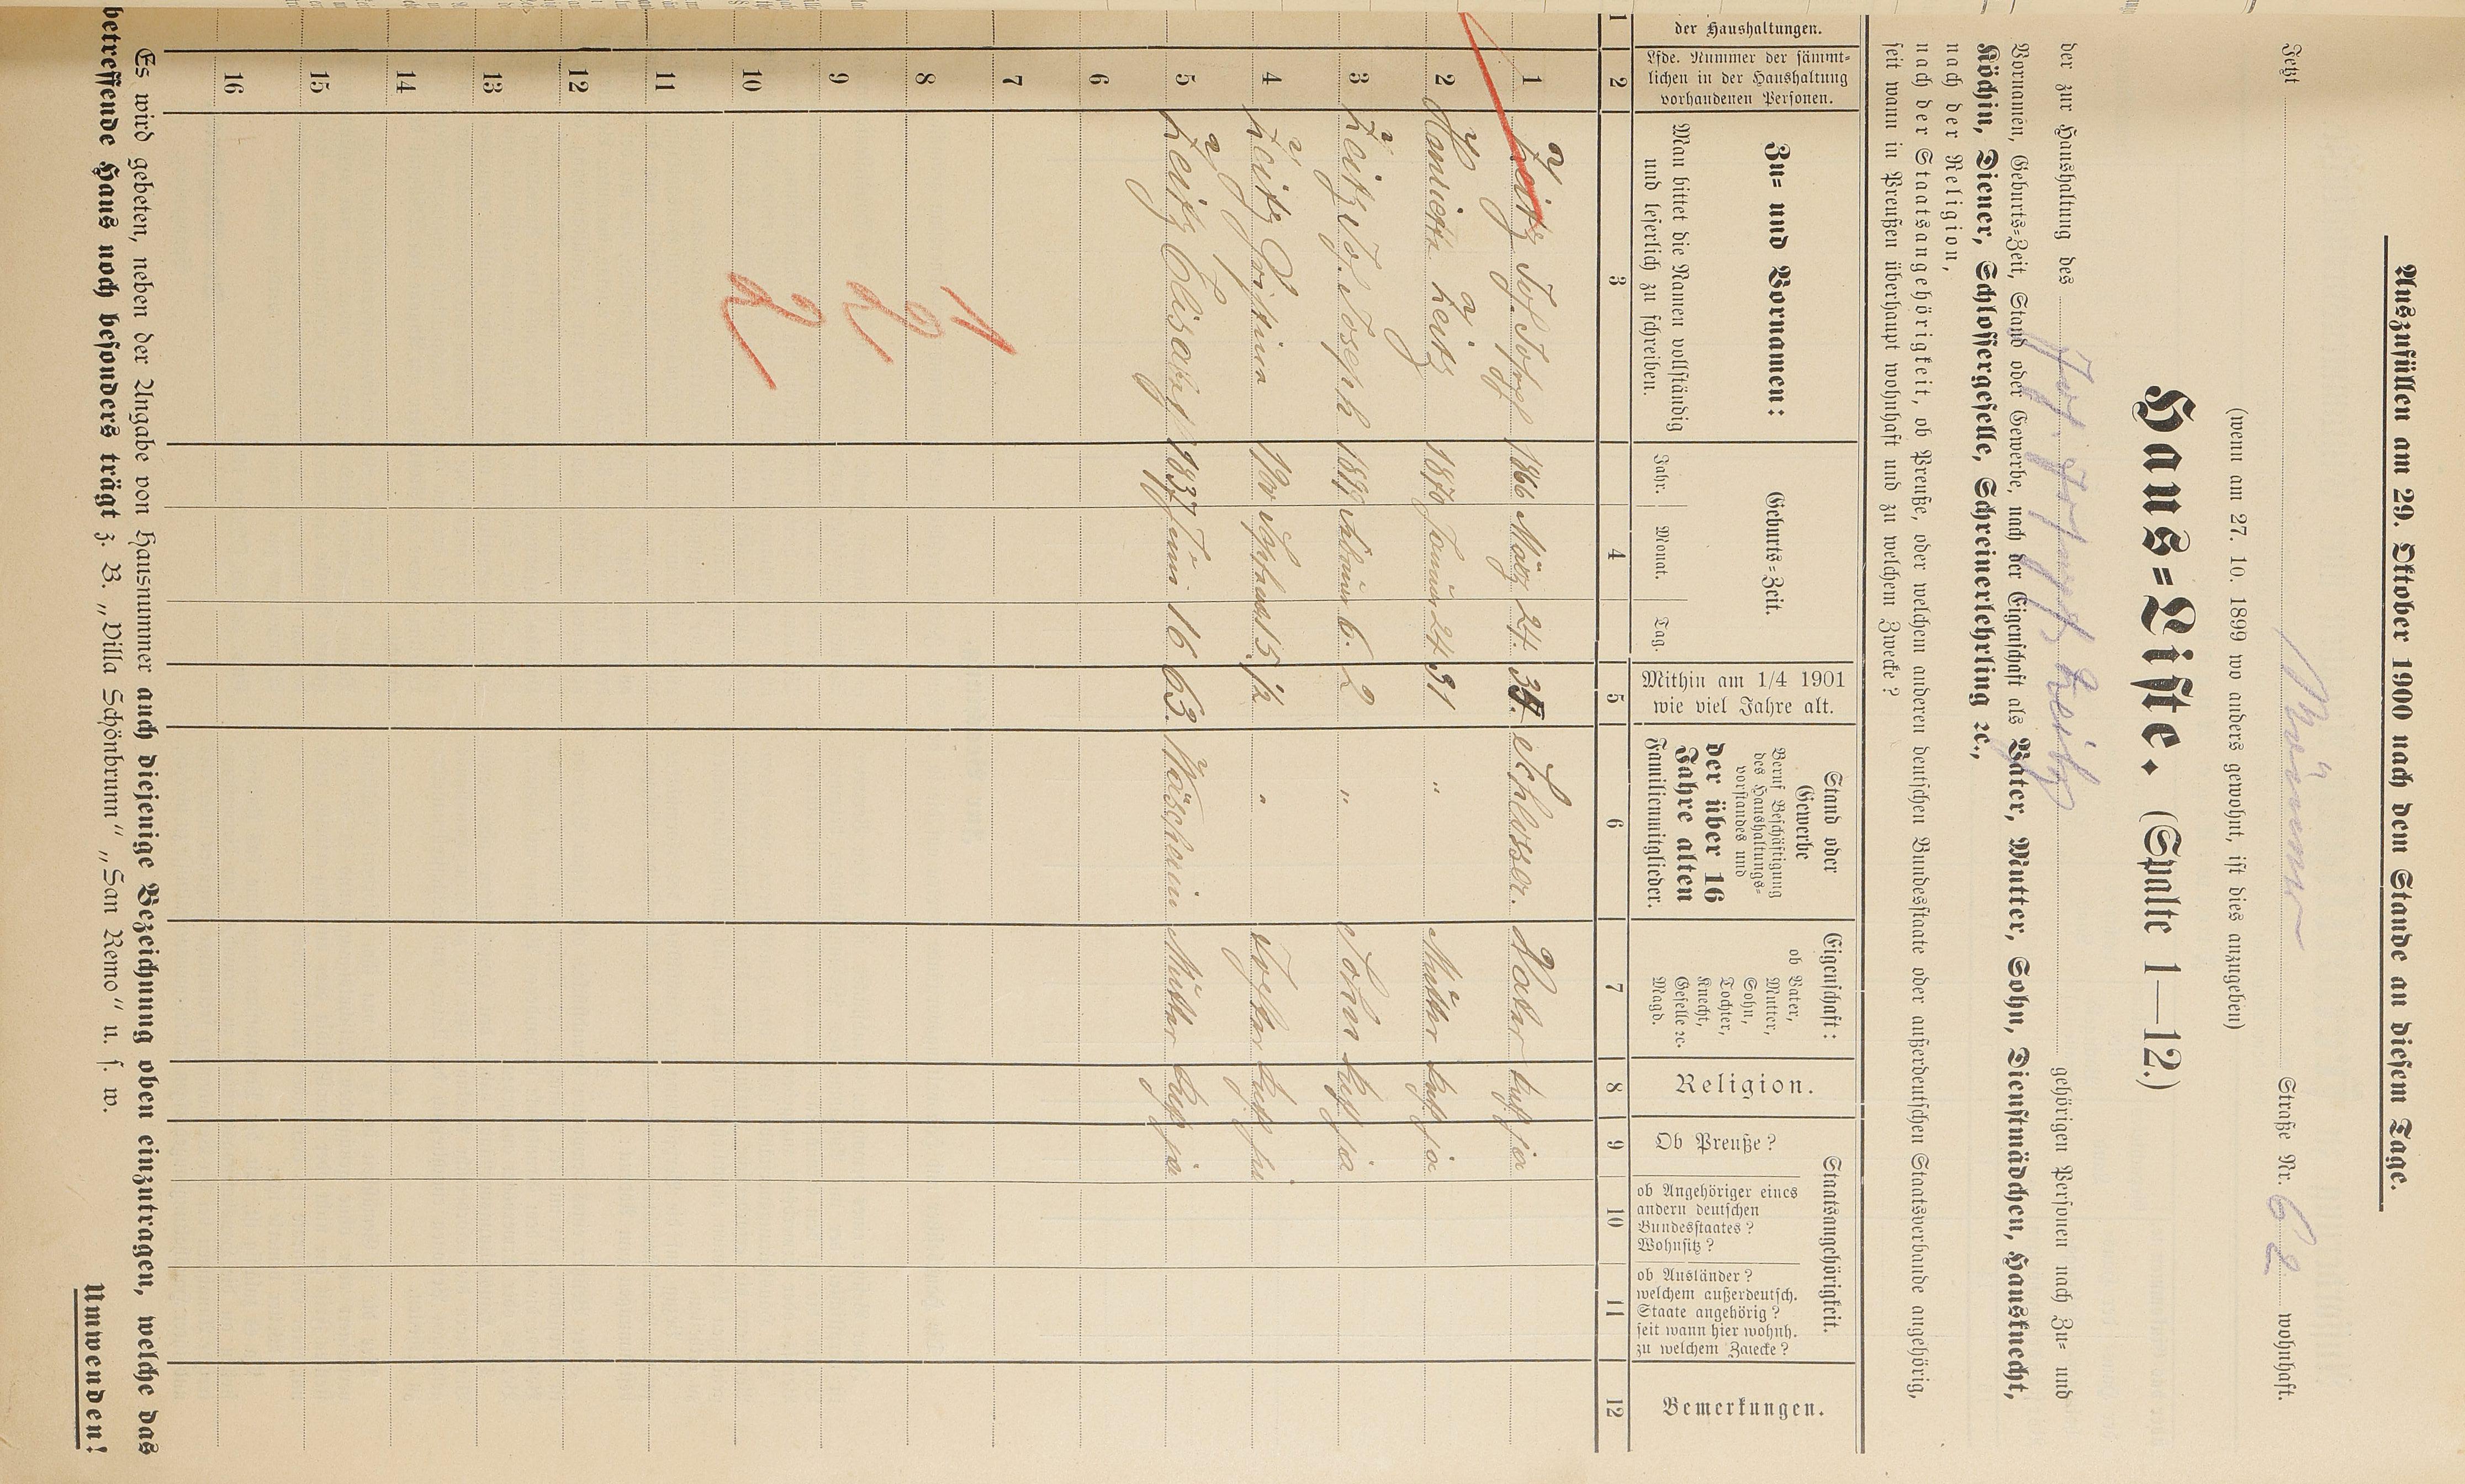 Auszufüllen am 29. Oktober 1900 nach dem Stande an diesem Tage.
Jetzt Straße Nr. 62 wohnhaft.
(wenn am 27. 10. 1899 wo anders gewohnt, ist dies anzugeben)
Haus=Liste. (Spalte 1—12.)
der zur Haushaltung des Joh. Joseph Zeitz gehörigen Personen nach Zu= und
Vornamen, Geburts=Zeit, Stand oder Gewerbe, nach der Eigenschaft als Vater, Mutter, Sohn, Dienstmädchen, Hausknecht,
Köchin, Diener, Schlossergeselle, Schreinerlehrling ec.,
nach der Religion,
nach der Staatsangehörigkeit, ob Preuße, oder welchem anderen deutschen Bundesstaate oder außerdeutschen Staatsverbande angehörig,
seit wann in Preußen überhaupt wohnhaft und zu welchem Zwecke?
der Haushaltungen.
Lfde. Nummer der sämmt=
lichen in der Haushaltung
vorhandenen Personen.
Zu= und Vornamen:
Man bittet die Namen vollständig
und leserlich zu schreiben.
Geburts=Zeit.
Jahr. Monat. Tag.
Mithin am 1/4 1901
wie viel Jahre alt.
Stand oder
Gewerbe
Beruf Beschäftigung
des Haushaltungs=
vorstandes und
der über 16
Jahre alten
Familienmitglieder.
Eigenschaft:
ob Vater,
Mutter,
Sohn,
Tochter,
Knecht,
Geselle ec.
Magd.
Religion.
Staatsangehörigkeit.
Ob Preuße?
ob Angehöriger eines
andern deutschen
Bundesstaates?
Wohnsitz?
ob Ausländer?
welchem außerdeutsch.
Staate angehörig?
seit wann hier wohnh.
zu welchem Zwecke?
Bemerkungen.
1 2 3 4 5 6 7 8 9 10 11 12
1 Zeitz Joh. Joseph 1866 März 24. Schlosser. Vater kath ja
2 Zeitz 1870 Januar 24 31 " Mutter kath ja
3 Zeitz Joh. Joseph Februar 6. 2 " Sohn kath ja
4 Zeitz 15. Tochter kath ja
5 Zeitz Elisabeth 1837 Juni 16 63. Wäscherin Mutter kath ja
6
7
8
9
10
11
12
13
14
15
16
1
2
2
Es wird gebeten, neben der Angabe von Hausnummer auch diejenige Bezeichnung oben einzutragen, welche das
betreffende Haus noch besonders trägt z. B. „Villa Schönbrunn“ „San Remo“ u. s. w.
Umwenden!